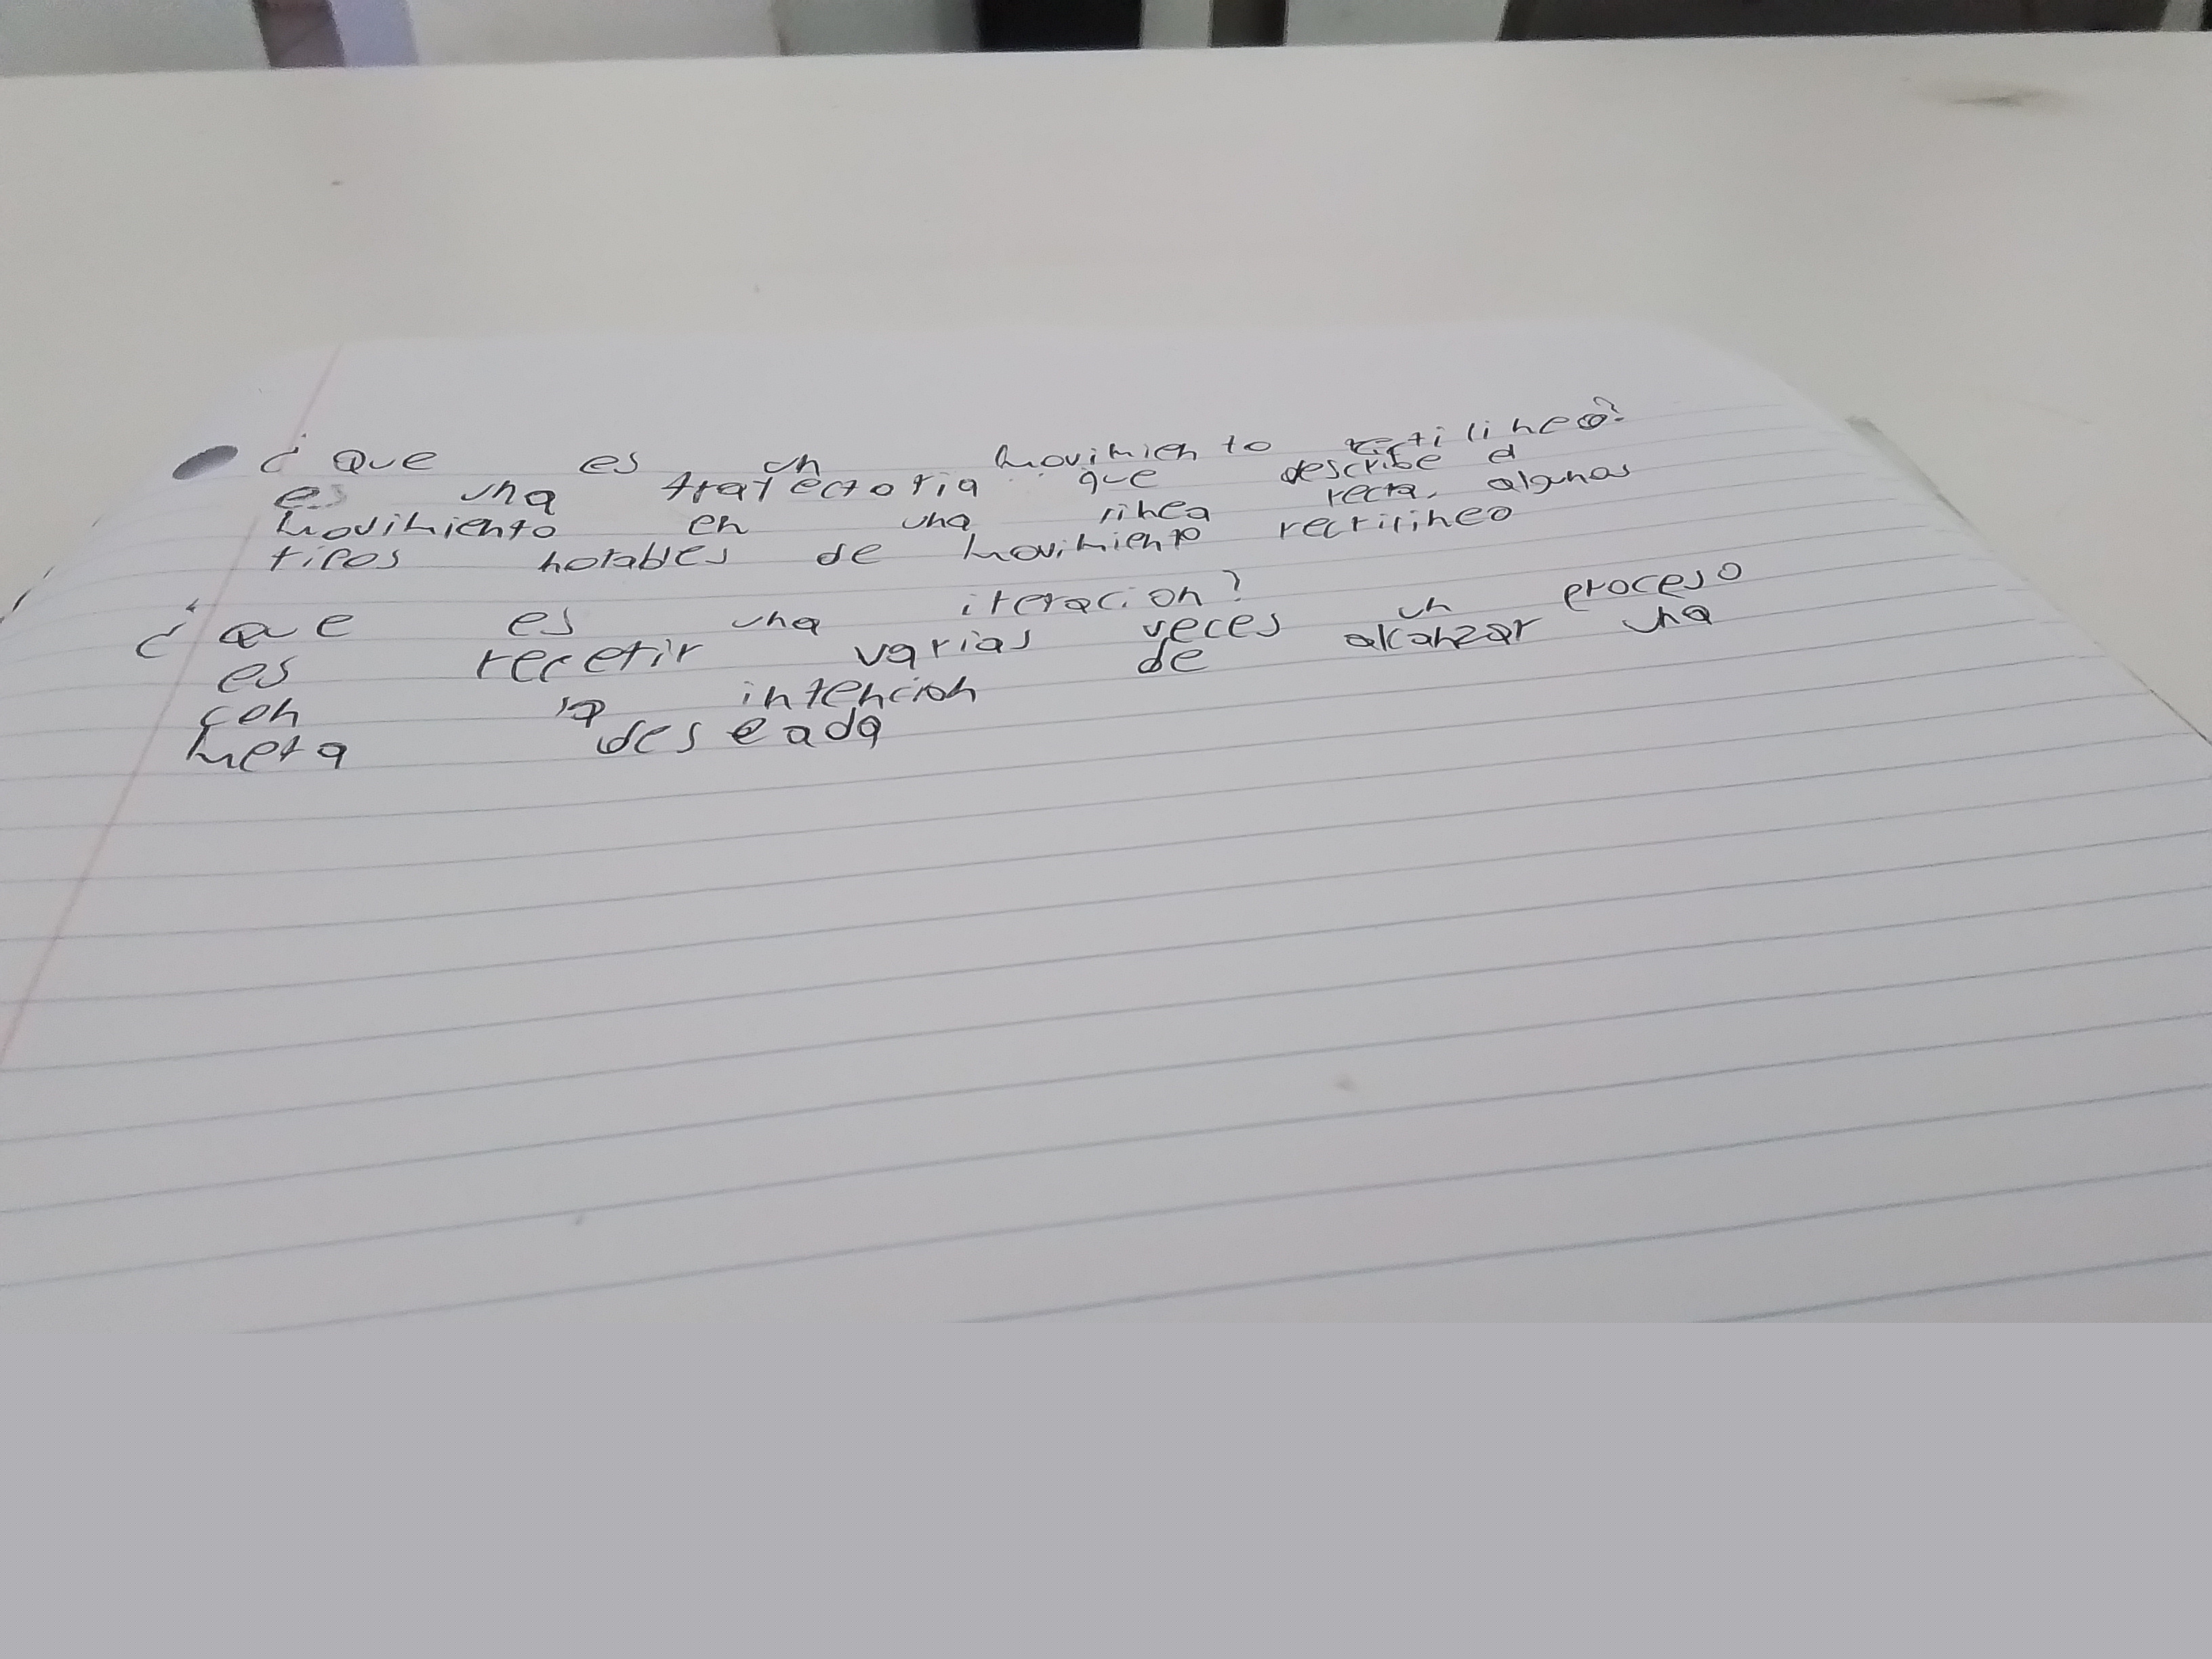 ¿Que es un movimiento rectilineo?
es una trayectoria que describe el
movimiento en una linea recta, algunas
tipos notables de movimiento rectilineo
¿que es una iteracion?
es repetir varias veces un proceso
con la intencion de alcanzar una
meta deseada